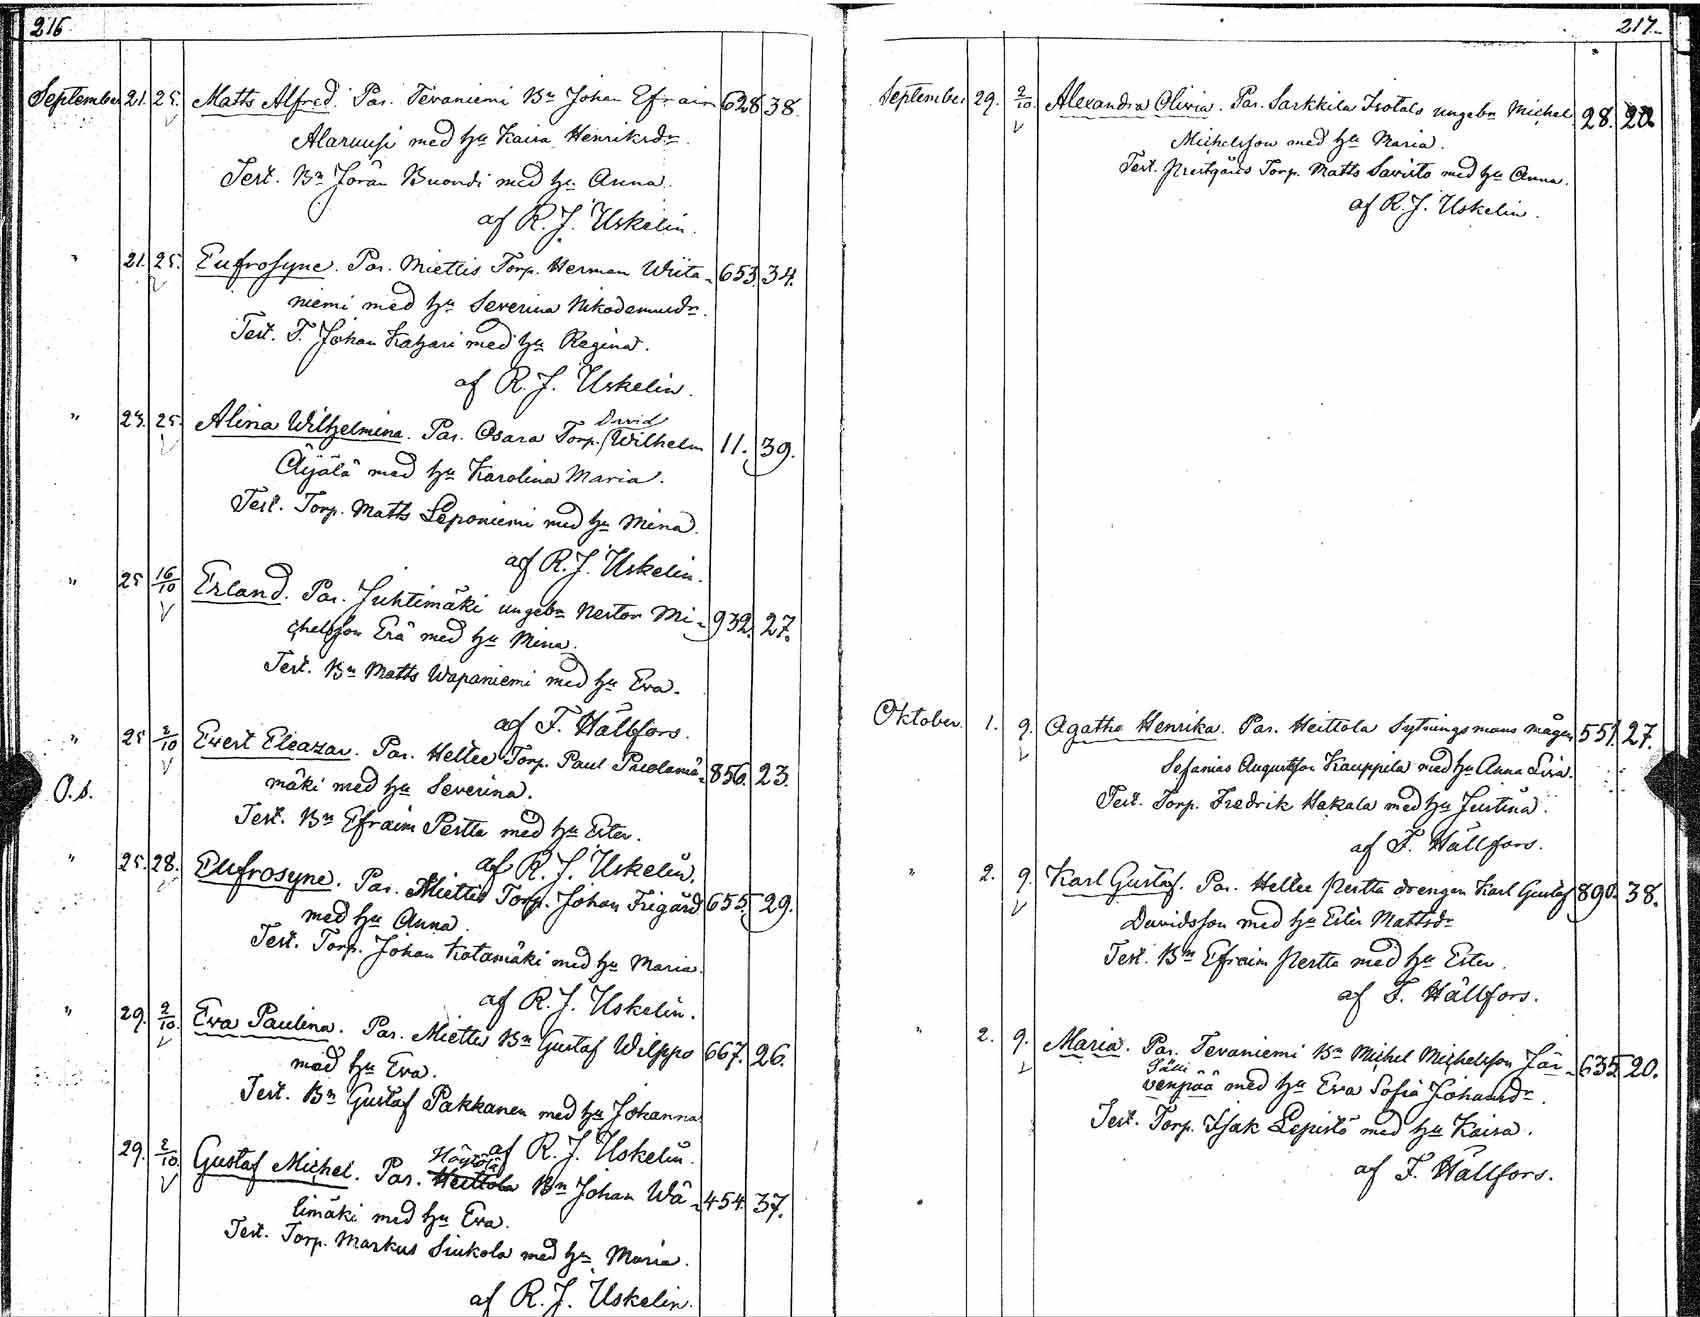 216
September 21. 25. Matts Alfred. Par. Tevaniemi Bn Johan Efraim 628 38.
Alaruusi med hu Kaisa Henriksdr.
Test. Bn Jöran Buondi med hu Anna.
af R. J. Uskelin.
" 21. 25. Eufrosyne. Par. Miettis Torp. Herman Wiita- 653. 34.
niemi med hu Severina Nikodemusdr.
Test. T. Johan Katzari med hu Regina.
af R. J. Uskelin.
David
" 23. 25. Alina Wilhelmina. Par. Osara Torp. Wilhelm 11. 39.
Äijälä med hu Karolina Maria.
Test. Torp. Matts Leponiemi med hu Mina.
af R. J. Uskelin.
" 25 16/10 Erland. Par. Juhtimäki ungebn Nestor Mi- 932. 27.
chelsson Erä med hu Mina.
Test. Bn Matts Wapaniemi med hu Eva.
af F. Hällfors.
" 25 2/10 Evert Eleazar. Par. Hellee Torp. Paul 856. 23.
mäki med hu Severina.
O.s.
Test. Bn Efraim Pertta med hu Ester.
af R. J. Uskelin.
" 25. 28. Eufrosyne. Par. Miettis Torp. Johan Frigård 655. 29.
med hu Anna.
Test. Torp. Johan Kotamäki med hu Maria.
af R. J. Uskelin.
" 29. 2/10 Eva Paulina. Par. Miettis Bn Gustaf Wilppo 667. 26.
med hu Eva.
Test. Bn Gustaf Pakkanen med hu Johanna.
af R. J. Uskelin.
Höytölä
29. 2/10 Gustaf Michel. Par. Heittola Bn Johan Wä- 454. 37.
limäki med hu Eva.
Test. Torp. Markus Siukola med hu Maria.
af R. J. Uskelin.
217.
September 29. 2/10 Alexandra Olivia. Par. Sarkkila Isotalo ungebn Michel 28. 22
Michelsson med hu Maria.
Test. Prestgårds Torp. Matts Savisto med hu Anna.
af R. J. Uskelin.
Oktober. 1. 9. Agatha Henrika. Par. Heittola Sytningsmans mågen 551. 27.
Sefanias Augustsson Kauppila med hu Anna Lisa.
Test. Torp. Fredrik Hakala med hu Justina.
af F. Hällfors.
" 2. 9. Karl Gustaf. Par. Hellee Pertta drengen Karl Gustaf 890. 38.
Davidsson med hu Ester Mattsdr
Test. Bn Efraim Pertta med hu Ester.
af F. Hällfors.
" 2. 9. Maria. Par. Tevaniemi Bn Michel Michelsson Jär- 635 20.
venpää med hu Eva Sofia Johansdr.
Test. Torp. Isak Lepistö med hu Kaisa.
af F. Hällfors.